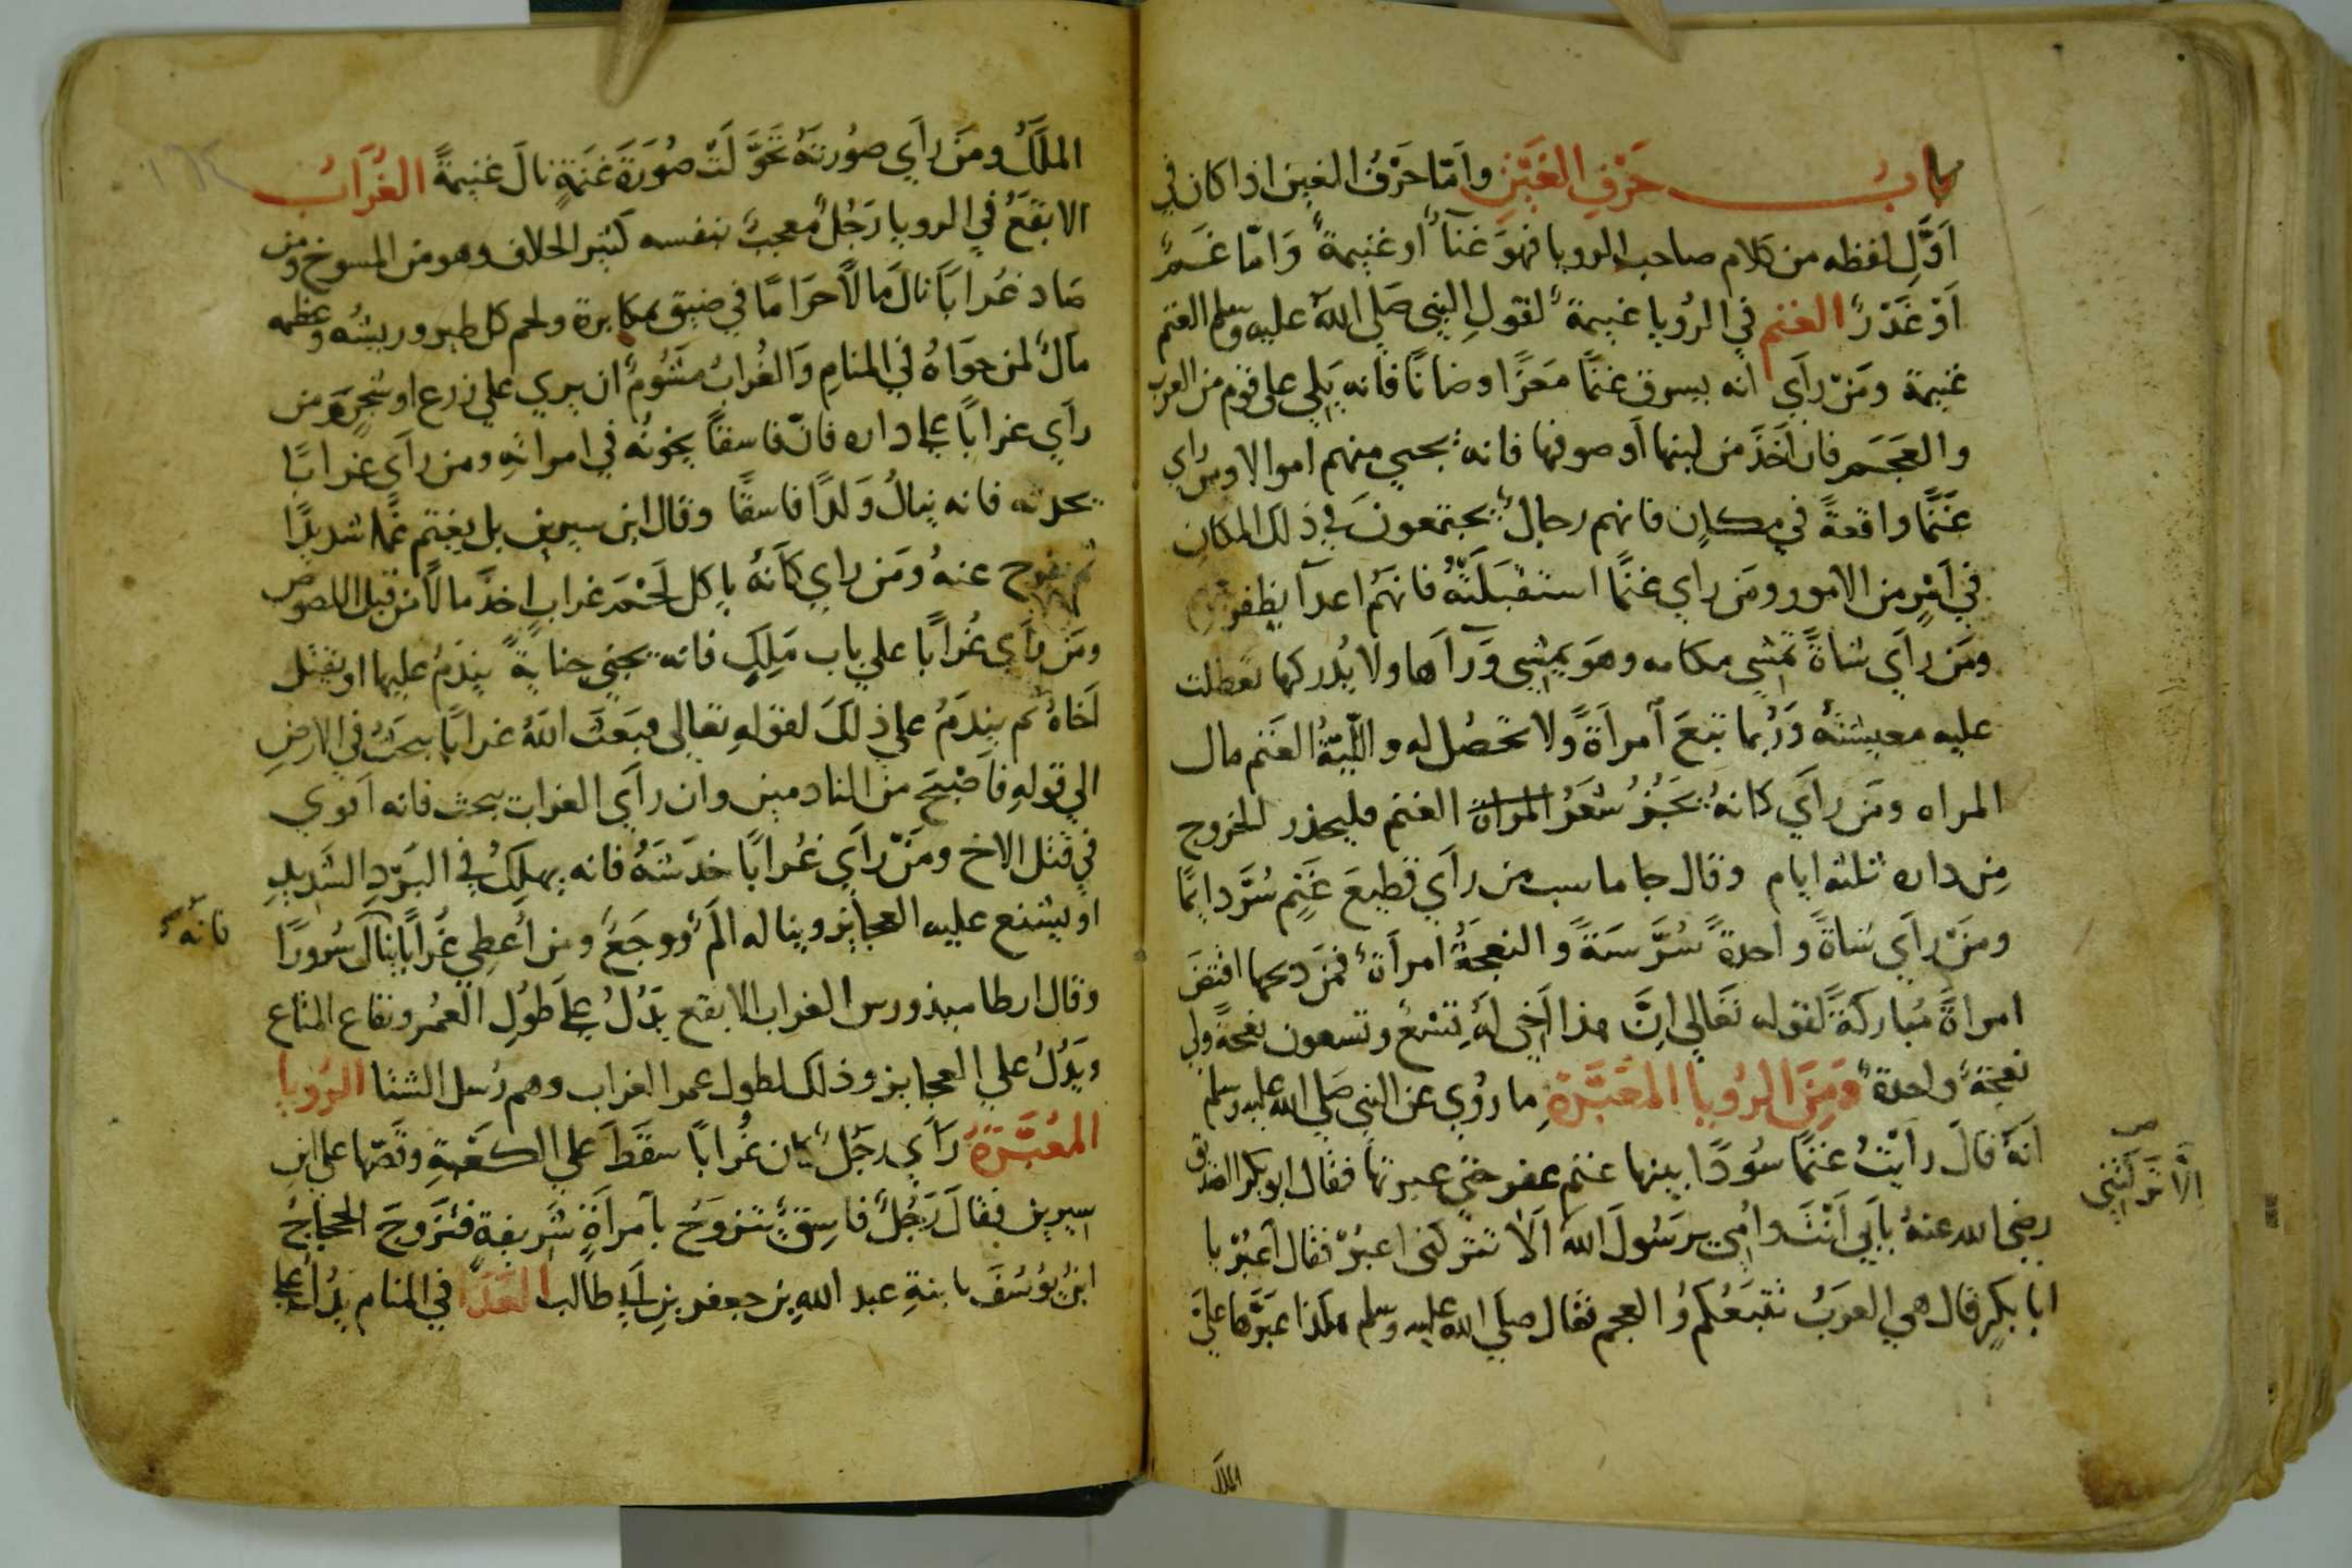 باب حَرْفِ الغَيْنِ وامّا حَرْفُ الغين اذا كان في
اَوَّلِ لفظه من كلام صاحب الرويا فهوَ غنآءٌ او غنيمةٌ وَامّا غَمٌ
اَوْ غَدْرٌ الغنم في الرُويا غنيمةٌ لقولِ النبي صَلي اللهُ عليه وسلم الغنم
غنيمة ومَنْ رأَي انه يسوق غنمًا مَعزًا او ضانًا فانه يَلِي على قوم من العرب
والعَجَم فان اَخَذَ من لبنها اَو صوفها فانه يجبي منهم اموالا ومن راي
غنَمًا واقعةً في مكانٍ فانهم رجالٌ يجتمعونَ في ذلك المكان
في اَمْرٍ من الامور ومَن راي غنمًا استقبلَتْهُ فانهَم اعدآ يظفر
ومَن رأَي شاةً تمشي مكامه وهوَ يمشي وَرآها ولا يُدركها تعطلت
عليه معيشتهُ وَرُبما تبعَ اَمرأَةً ولا تحَصُل له والليّةُ الغَنم مال
المراه ومَن رأَي كانهُ يَجُزُّ شعَرُ المراة الغنم فليحذر الخروج
مِن داره ثلثه ايام وقال جاماسب من رأَي قطيعَ غَنَمٍ سُرَّ دايمًا
ومَنْ رأَي شاةً واحدةً سُرَّ سَنةً والنعجَةُ امرأَةٌ فمَن ذبحها افتضَ
امراةً مُباركَةً لقوله تعَالي اِنَّ هذا اَخي لهُ تِسْعٌ وتسعون نعجةً ولي
نعجَةٌ واحدةٌ وَمِنَ الرُويا المُعَبَّرَةِ ما رُوي عن النبي صَلي الله عليه وسلم
اَنهُ قالَ رأَيْتُ غنمًا سُودًا يبنها غنم عفر حتي عبرتها فقال ابو بكر الصديق
رضي الله عنهُ بأَبي اَنْتَ وامّي يرسُولَ اللهَ اَلا تتركني اعبرُ فقال اَعبُرْ يا
ابا بكرٍ قال هي العرَبُ تتبَعُكم وُ العجم فقال صلَي الله عليه وسلم هكذا عَبَّرَها عليَّ
اِلّا تَرَكْتَني
الملك
الملَكُ ومَن رأَي صُورتهُ تحَوَّلَتْ صُورَةَ غنَمَةٍ نالَ غنيمةً الغُرَابُ
الابقَعُ في الرويا رَجُلٌ مُعجبٌ بنفسه كثير الخلاف وهو من المسوخ ومن
صَاد غُرابًا نالَ مَالًا حَرَامًا في ضيق بمكابرة ولحم كل طير وريشُه وعظمه
مالٌ لمن حوَاهُ في المنامِ وَالغُرابُ مشئومٌ ان يري علي زرع او شجرٍ ومن
رأَي غرابًا على داره فانّ فاسقًا يخونُه في امراتهِ ومن رأَي غرابًا
يحدثه فانه ينالُ وَلدًا فاسقًا وقال ابن سيرين بل يغتم غمًا شديدًا
ثم يفرج عنهُ ومَن راي كأَنهُ ياكل لَحْمَ غرابٍ اخذَ مالًا من قبل اللصوص
ومَن رأَي غُرابًا علي باب مَلِكٍ فانه يجني جنايةً يندَمُ عليها او يقتل
اَخاهُ ثم يندَمُ علي ذلكَ لقولهِ تعالى فبَعَثَ اللهُ غرابًا يبحَثُ في الارضِ
الي قولهِ فاَصْبَحَ من النادمين وان رأَي الغراب يبحث فانه اَقوي
في قتل الاخ ومَنْ رأَي غُرابًا خدَشَهُ فانه يهلِكُ في البَرْدِ الشديدِ
او يشنع عليه العجايز ويناله المٌ ووجَعٌ ومن اُعطِي غُرابًا نالَ سُرورًا
فانّه
وقال ارطاميذورس الغراب الابقع يَدُلُّ على طُولِ العُمُر وبقاع المتاع
ويَدُلُّ علي العجايز وذلك لطول عمر الغراب وهم رُسل الشتا الرُويا
المُعَبَّرَةُ رَأَي رجَلٌ كان غُرابًا سقَطَ علي الكعْبَةِ وقصّها على ابن
سيرين فقالَ رَجُلٌ فاسِقٌ يتزوجُ باَمرأَةٍ شريفة فتَزوجَ الحجاجُ
ابنُ يُوسُفَ بابنةِ عبد اللهِ بن جعفر بن ابي طالب الغَدَا في المنام يدُلُّ على